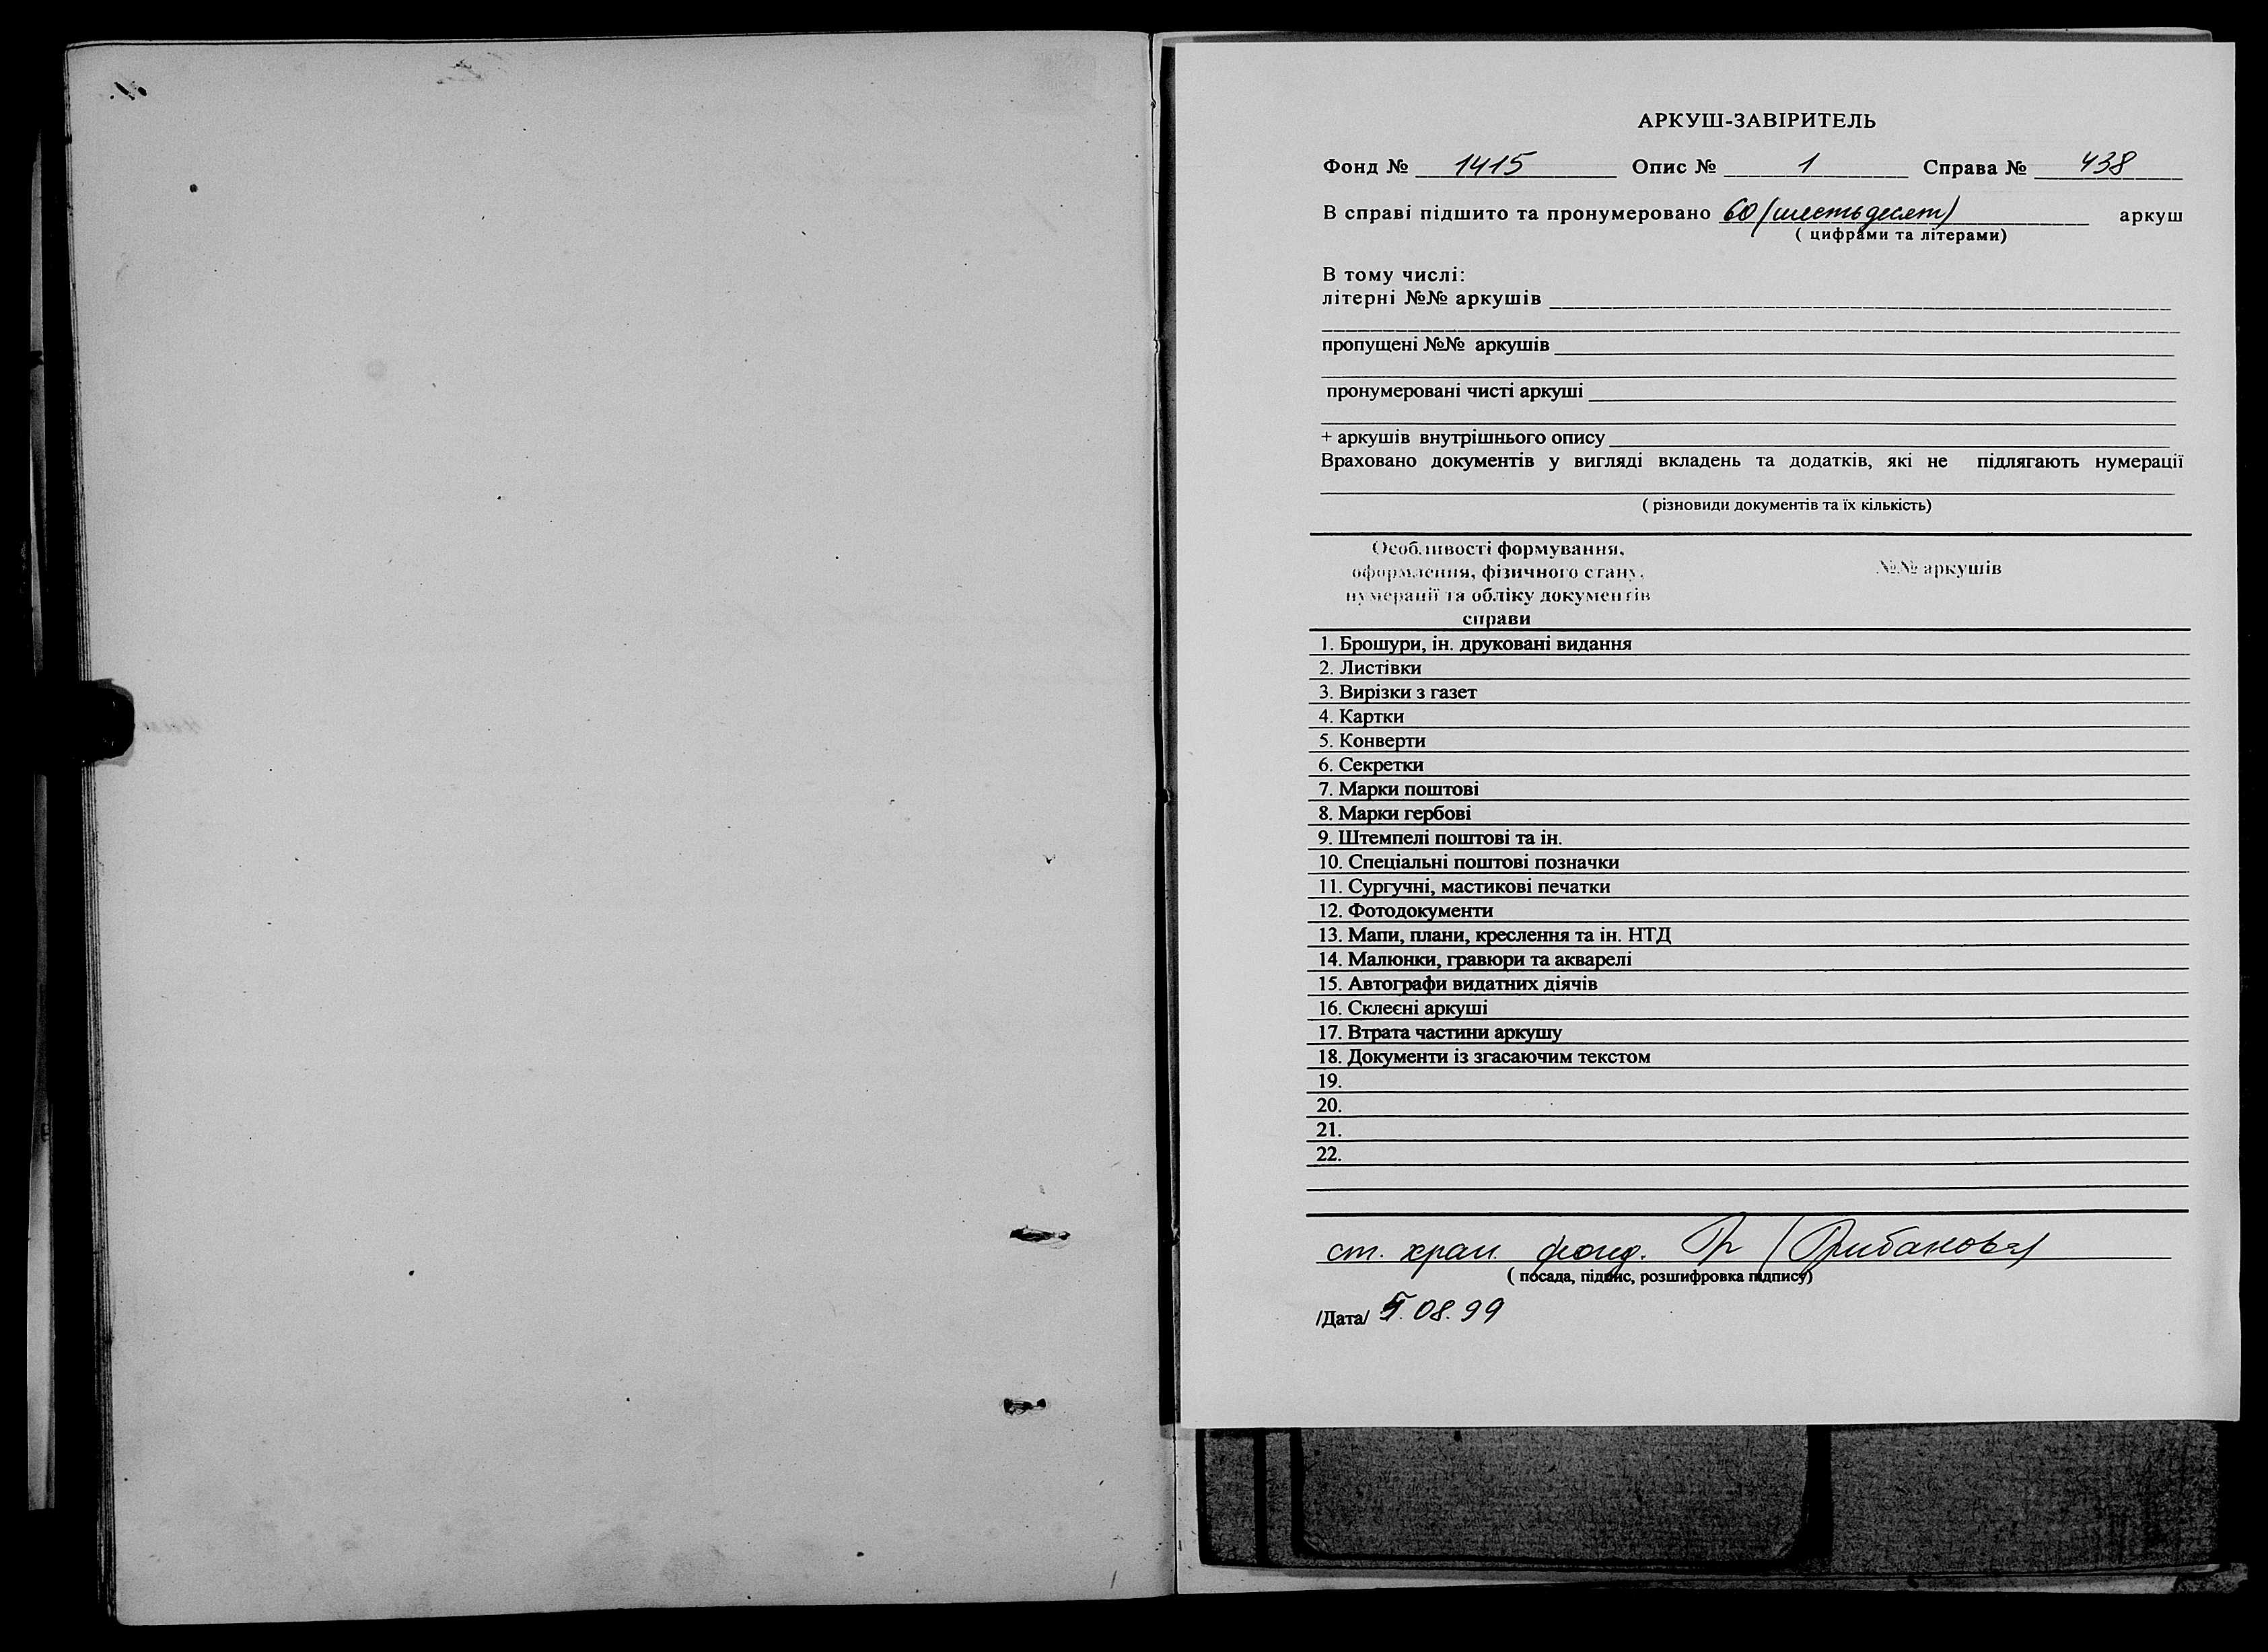 АРКУШ-ЗАВІРИТЕЛЬ
Фонд № 1415 Опис № 1 Справа № 438
В справі підшито та пронумеровано 60 (шестьдесят) аркуш
( цифрами та літерами)
В тому числі:
літерні №№ аркушів
пропущені №№ аркушів
пронумеровані чисті аркуші
+ аркушів внутрішнього опису
Враховано документів у вигляді вкладень та додатків, які не підлягають нумерації
( різновиди документів та їх кількість)
Особливості формування,
оформлення, фізичного стану,
нумерації та обліку документів
справи
№№ аркушів
1. Брошури, ін. друковані видання
2. Листівки
3. Вирізки з газет
4. Картки
5. Конверти
6. Секретки
7. Марки поштові
8. Марки гербові
9. Штемпелі поштові та ін.
10. Спеціальні поштові позначки
11. Сургучні, мастикові печатки
12. Фотодокументи
13. Мапи, плани, креслення та ін. НТД
14. Малюнки, гравюри та акварелі
15. Автографи видатних діячів
16. Склеєні аркуші
17. Втрата частини аркушу
18. Документи із згасаючим текстом
19.
20.
21.
22.
ст. хран. фонд. (Грибанова)
( посада, підпис, розшифровка підпису)
/Дата/ 08.99